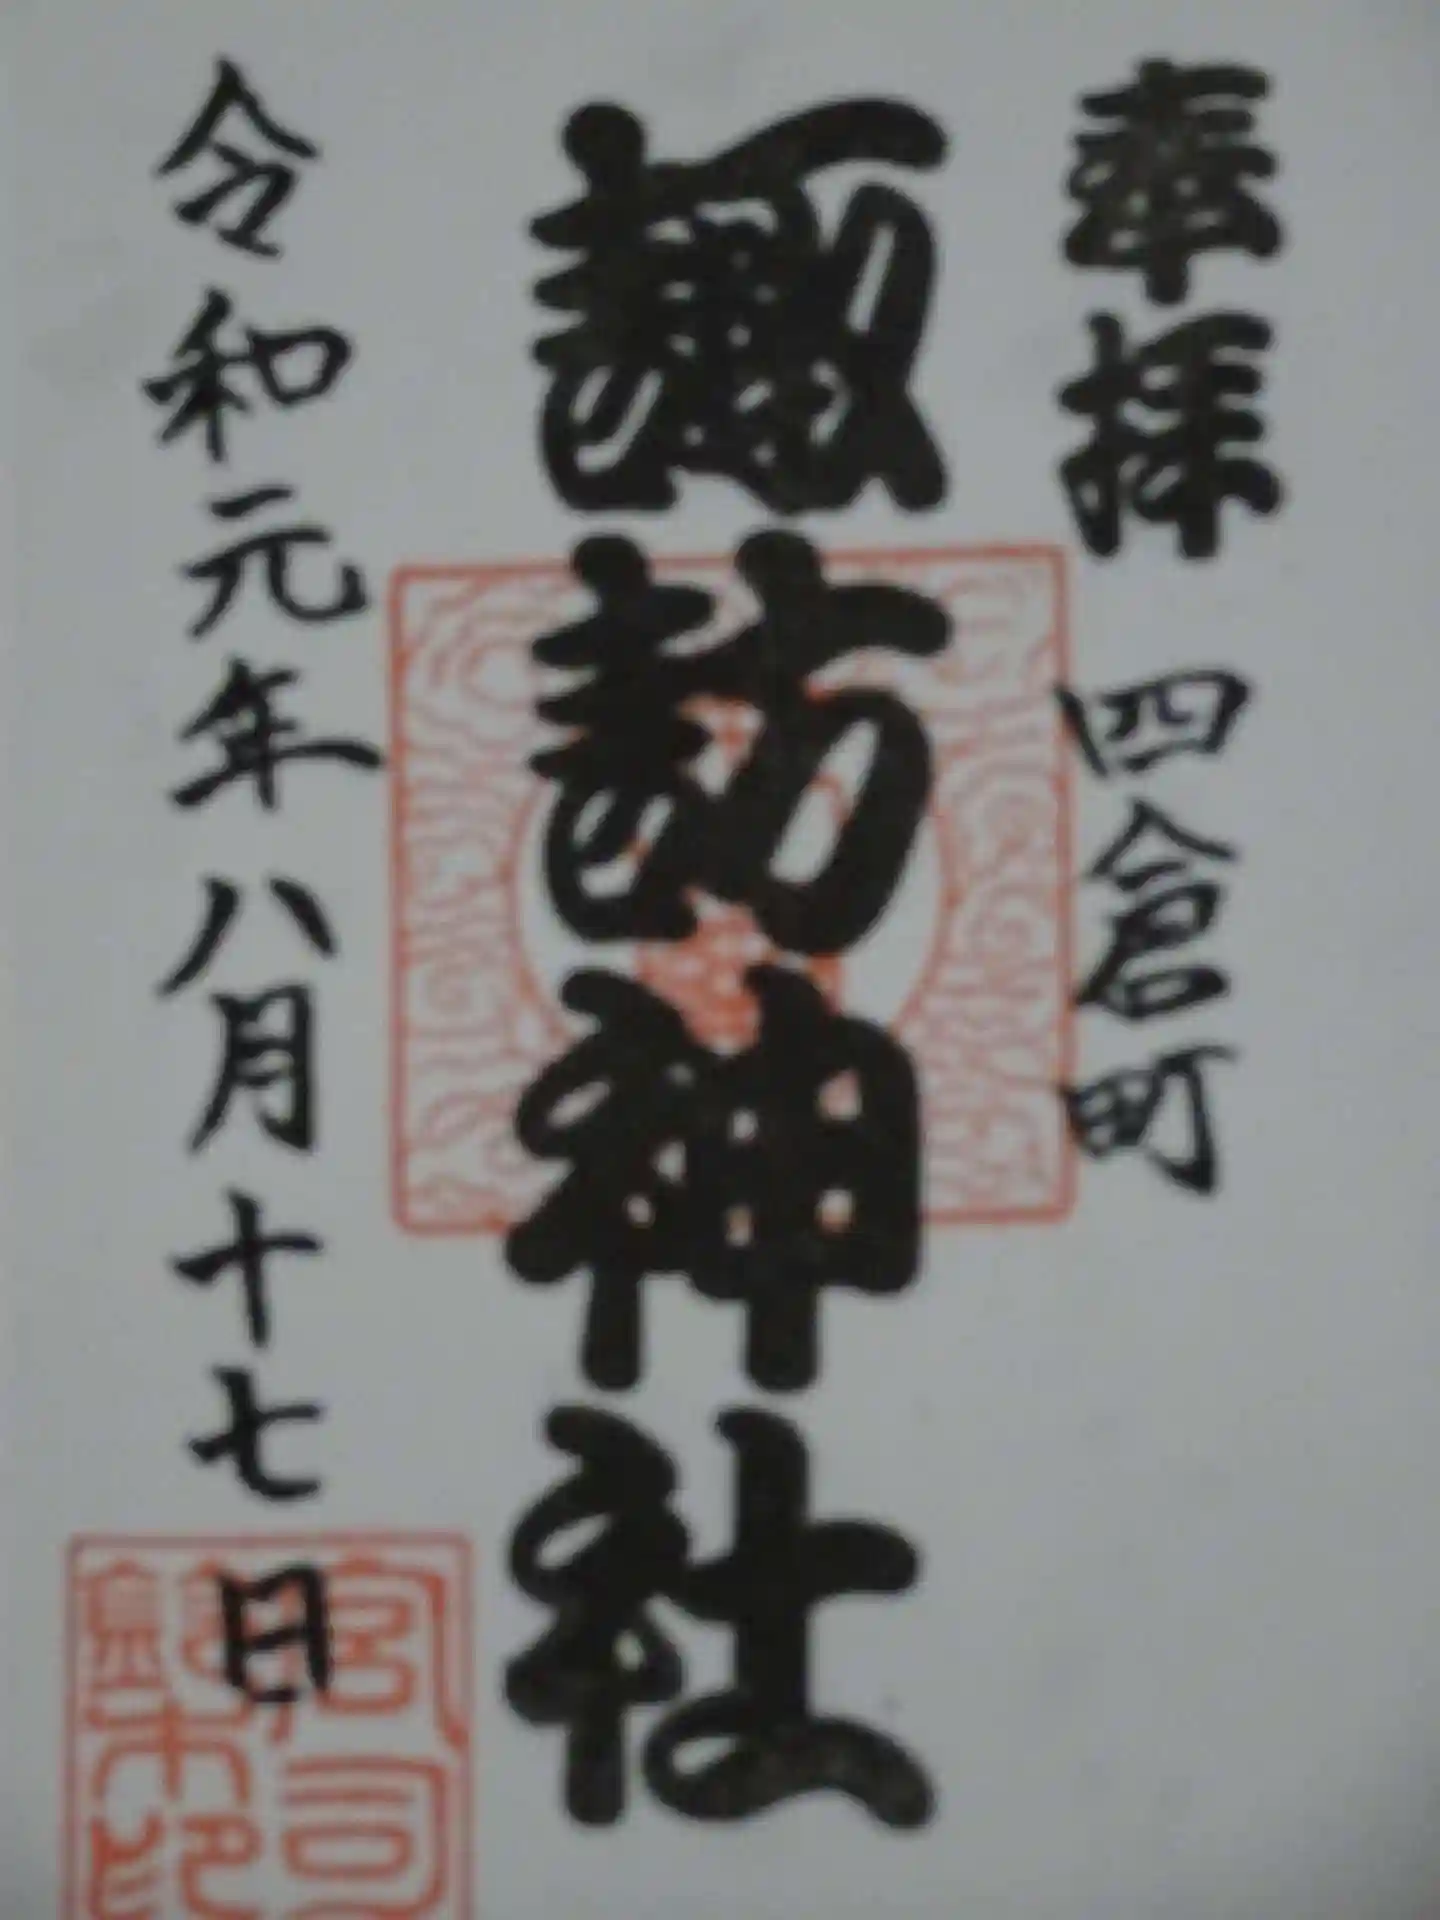 奉拝 四倉町
諏訪神社
令和元年八月十七日